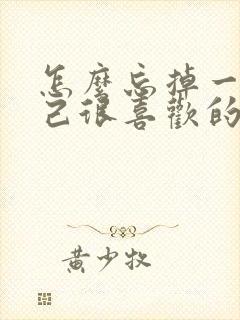 怎麼忘掉一
己很喜歡的
黃少牧